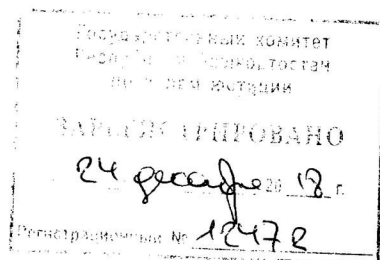 Государственный комитет
Республики Башкортостан
по
ЗАРЕГИСТРИРОВАНО
24 декабря 20 18 г.
Регистрационный № 12472